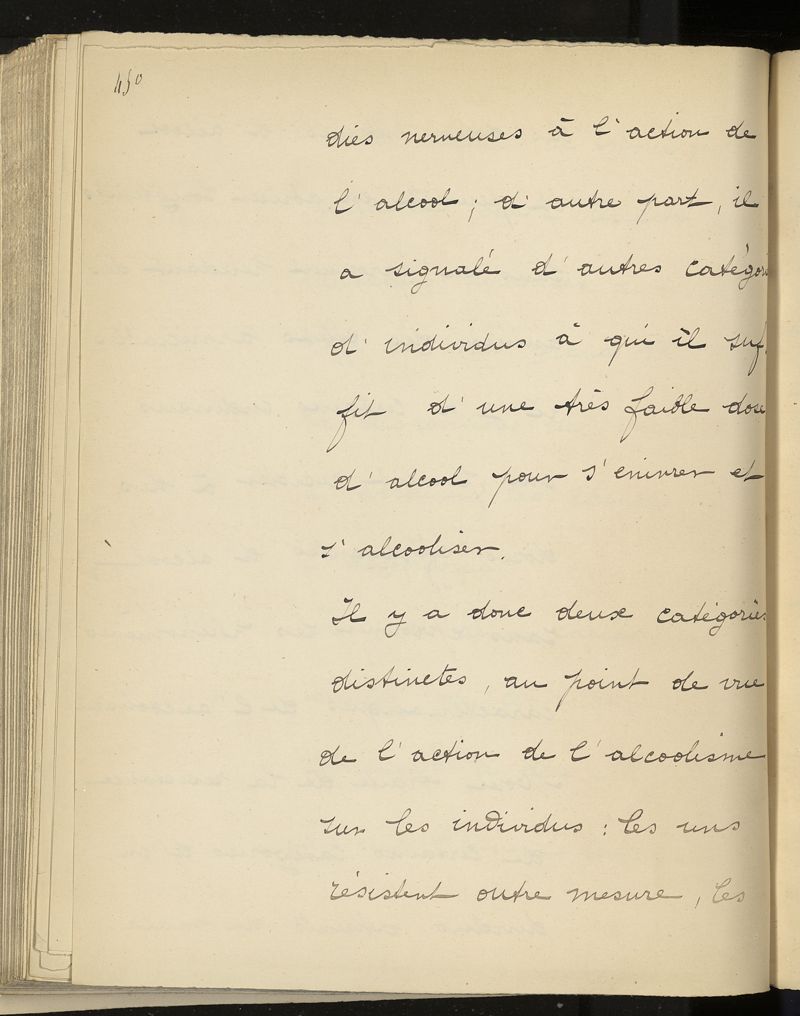 450
diés nerveuses à l'action de
l'alcool; d'autre part, il
a signalé d'autres catégori
d'individus à qui il suf-
fit d'une très faible dose
d'alcool pour s'enivrer et
s'alcooliser.
Il y a donc deux catégories
distinctes, au point de vue
de l'action de l'alcoolisme
sur les individus : les uns
résistent outre mesure, les